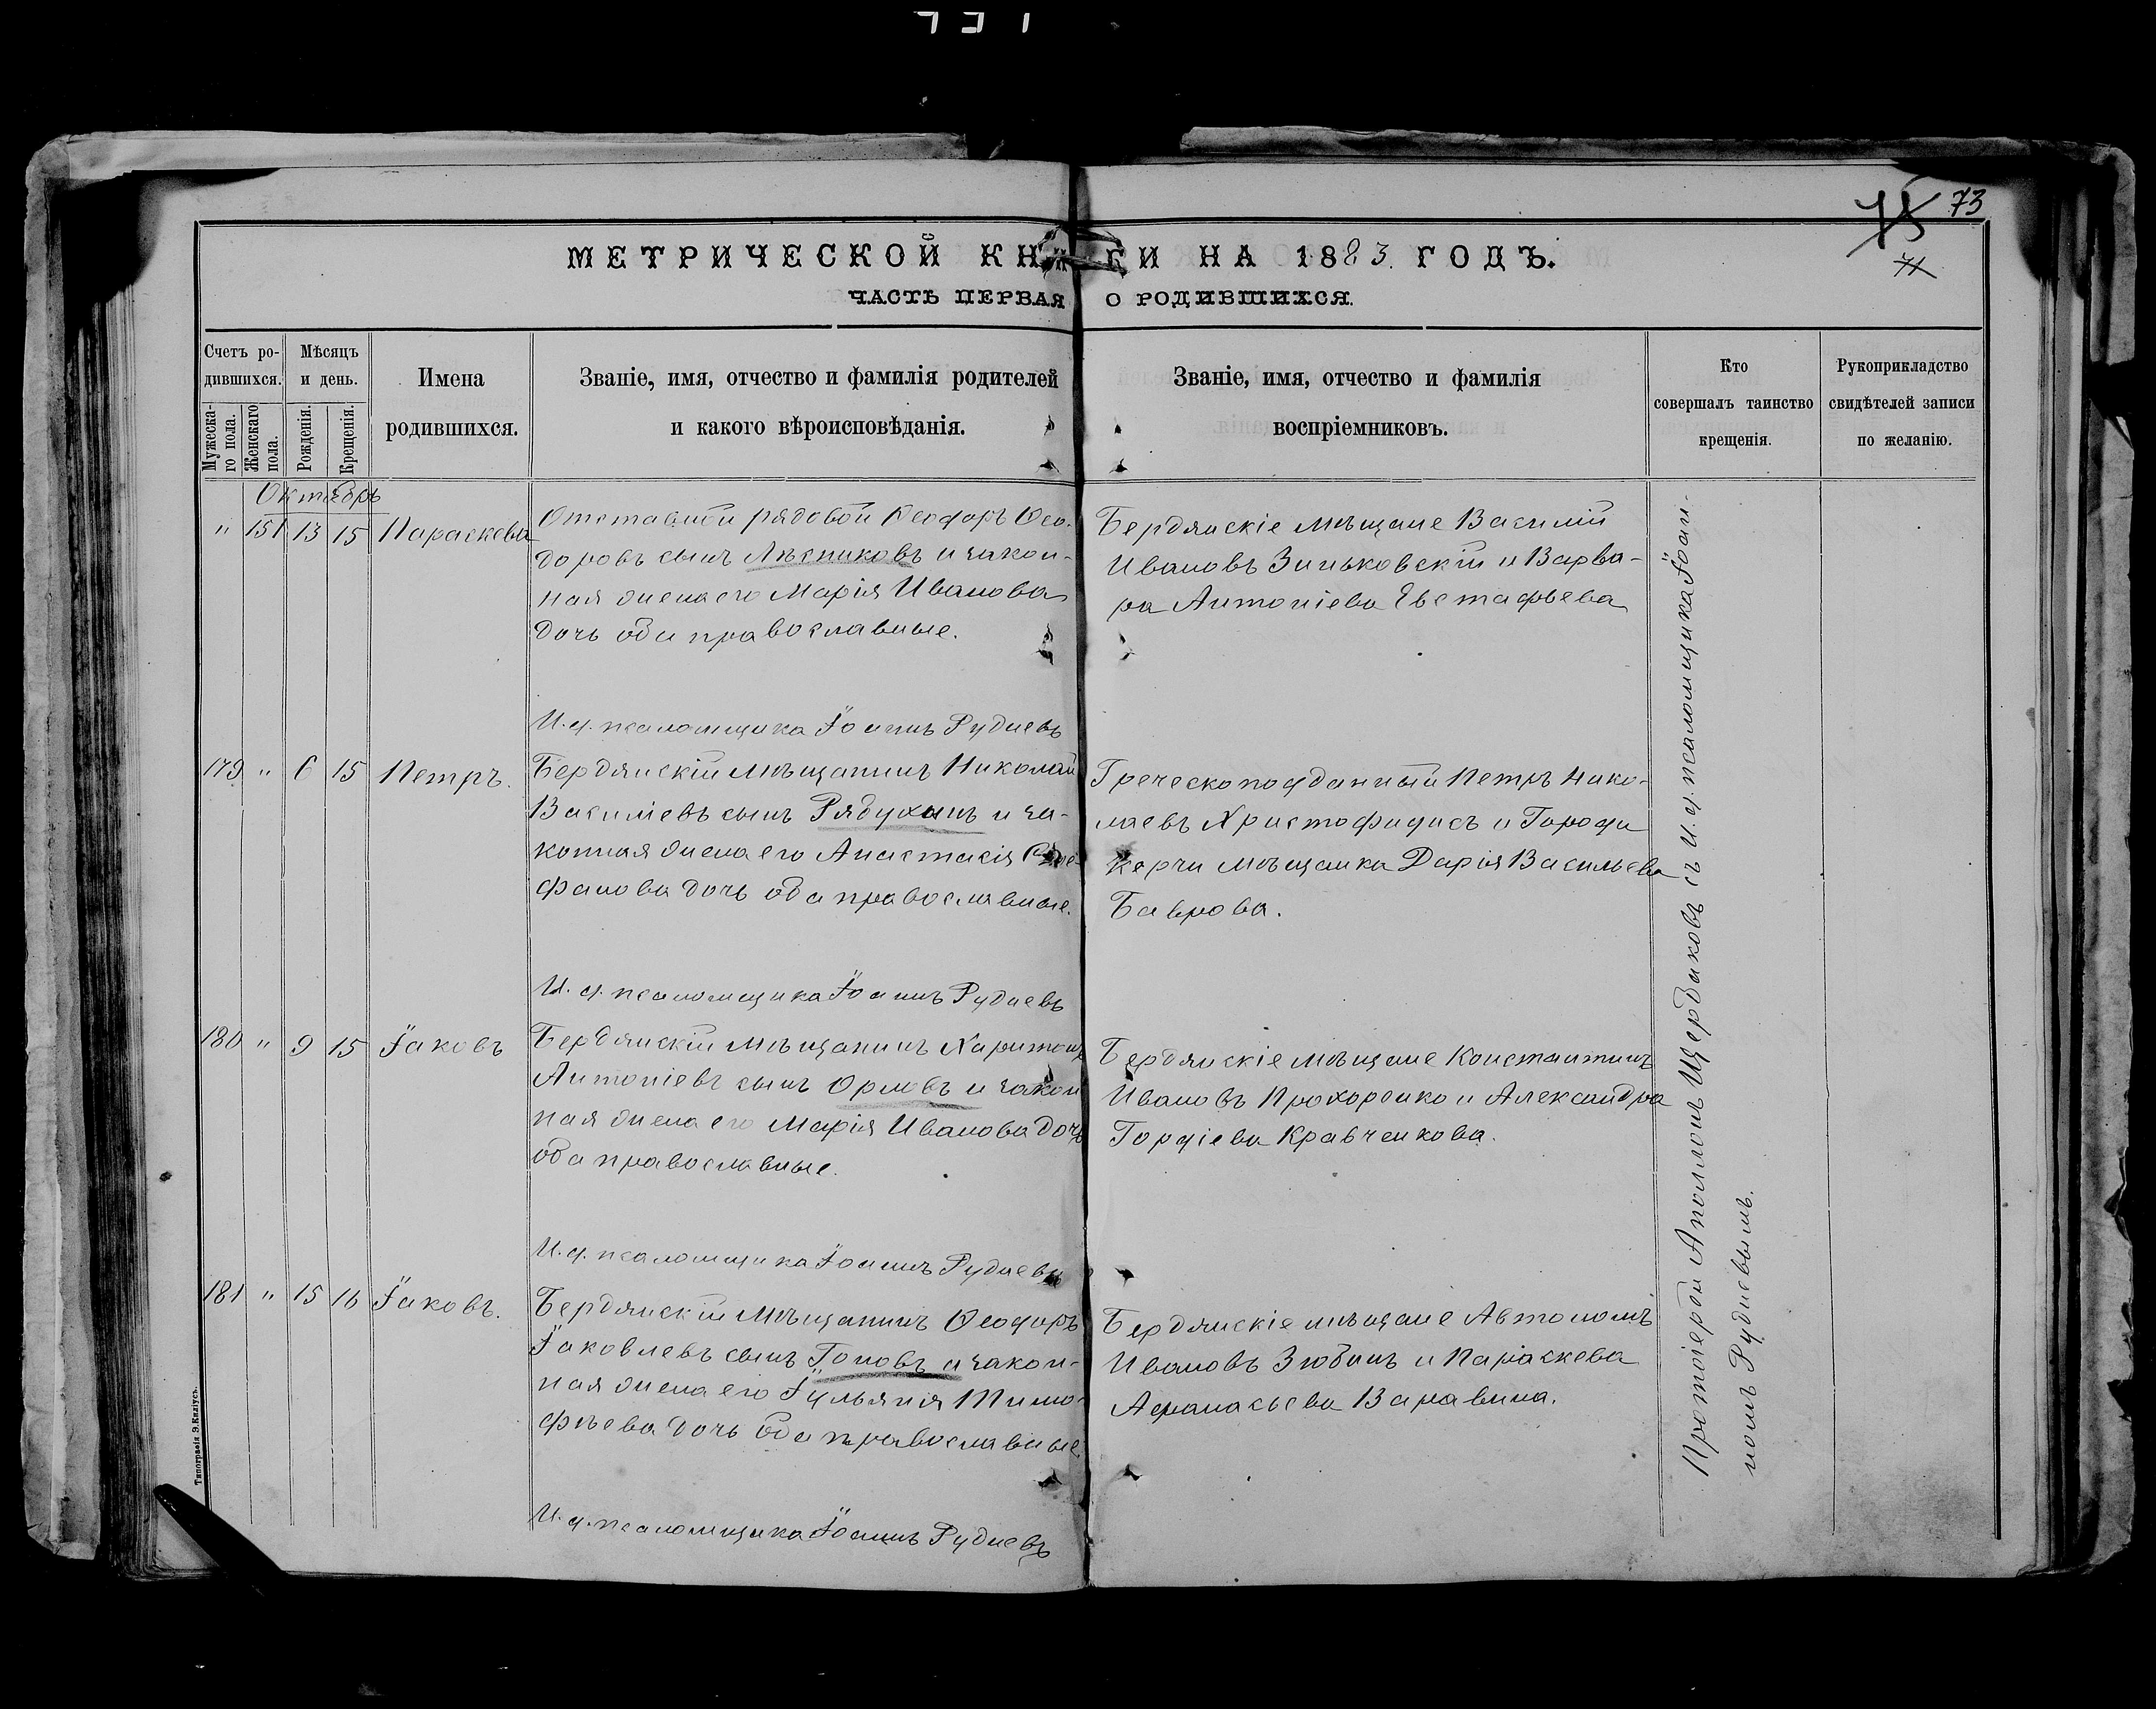 731
75 73
71
МЕТРИЧЕСКОЙ КНИГИ НА 1883. ГОДЪ.
ЧАСТЬ ПЕРВАЯ О РОДИВШИХСЯ.
Счетъ родившихся.
Мужескаго пола.
Женскаго пола.
Мѣсяцъ и день.
Рожденія.
Крещенія.
Имена
родившихся.
Званіе, имя, отчество и фамилія родителей
и какого вѣроисповѣданія.
Званіе, имя, отчество и фамилія
воспріемниковъ.
Кто
совершалъ таинство
крещенія.
Рукоприкладство
свидѣтелей записи
по желанію.
Октябрь
" 151 13 15 Параскева
Отставной рядовой Ѳеодоръ Ѳео-
доровъ сынъ Лѣсниковъ и закон-
ная жена его Марія Иванова
дочь оба православные.
Бердянскіе мѣщане Василій
Ивановъ Зиньковскій и Варва-
ра Антоніева Евстафьева
И. д. псаломщика Іоаннъ Рудневъ
179 " 6 15 Петръ.
Бердянскій мѣщанинъ Николай
Василіевъ сынъ Рябухинъ и за-
конная жена его Анастасія
фанова дочь оба православные.
Греческоподданный Петръ Нико-
лаевъ Христофидисъ и Города
Керчи мѣщанка Дарія Васильева
Баврова.
И. д. псаломщика Іоаннъ Рудневъ
180 " 9 15 Іаковъ
Бердянскій мѣщанинъ Харитонъ
Антоніевъ сынъ Орловъ и закон
ная жена его Марія Иванова дочь
оба православные.
Бердянскіе мѣщане Константинъ
Ивановъ Прохоренко и Александра
Гордіева Кравченкова.
И. д. псаломщика Іоаннъ Рудневъ
181 " 15 16 Іаковъ.
Бердянскій мѣщанинъ Ѳеодоръ
Іаковлевъ сынъ Поповъ и закон-
ная жена его Іульянія Тимо-
фѣева дочь оба православные
Бердянскіе мѣщане Автономъ
Ивановъ Зюбинъ и Параскева
Афанасьева Варавина.
И. д. псаломщика Іоаннъ Рудневъ
Протоіерей Аполлонъ Щербаковъ съ и. д. псаломщика Іоан-
номъ Рудневымъ.
Типографія Э. Киліусъ.